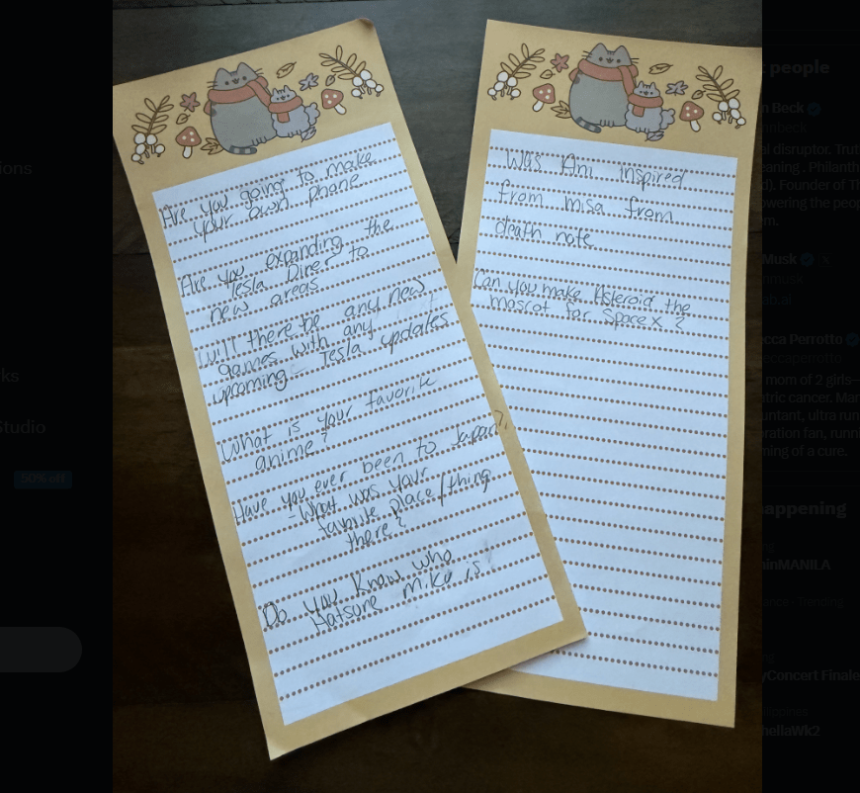 Are you going to make
your own phone
Are you expanding the
Tesla Diner to
new areas
Will there be any new
games with any
upcoming Tesla updates
What is your favorite
anime?
Have you ever been to Japan?
-What was your
favorite place/thing
there?
Do you know who
Hatsune Miku is
Was Ani inspired
from misa from
death note
Can you make Asteroid the
mascot for SpaceX?
ions
ks
Studio
50% off
people
n Beck
nbeck
al disruptor, Trut
eaning . Philanth
d), Founder of T
owering the peop
m.
Musk
nmusk
s.ai
cca Perrotto
ccaperrotto
mom of 2 girls
tric cancer. Mar
untant, ultra run
ration fan, runn
ming of a cure.
appening
inMANILA
Trending
yConcert Finale
hellaWk2